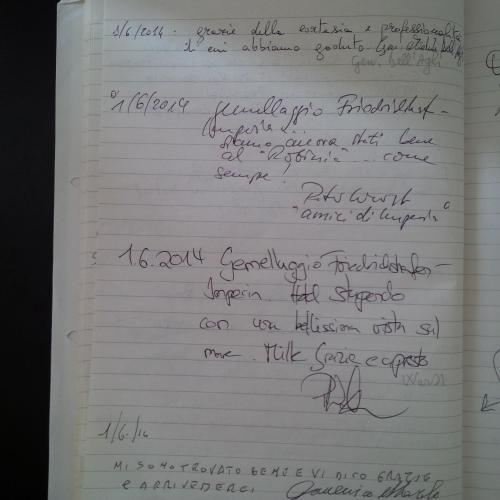 3/6/2014 - grazie della cortesia e professionalità
di cui abbiamo goduto
Gen. Dell'Agli
1/6/2014 gemellaggio
Imperia..
siamo ancora stati bene
al "Robinia" ... come
sempre!
"amici di Imperia"
1.6.2014 Gemellaggio Friedrichshafen-
Imperia. Hotel Stupendo
con una bellissima vista sul
mare. Mille Grazie e a presto
1/6/14
MI SONO TROVATO BENE E VI DICO GRAZIE
E ARRIVEDERCI